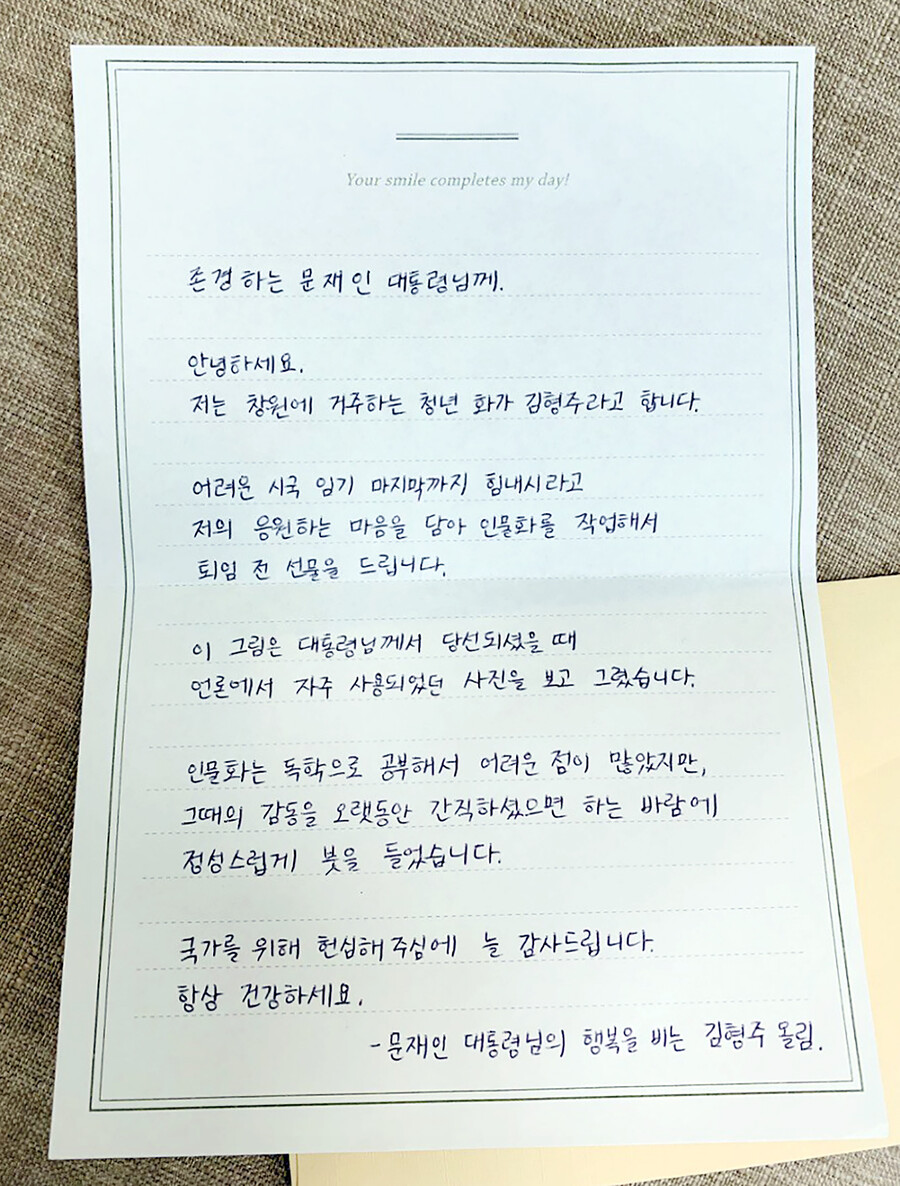 Your smile completes my day!
존경하는 문재인 대통령님께.
안녕하세요.
저는 창원에 거주하는 청년 화가 김형주라고 합니다.
어려운 시국 임기 마지막까지 힘내시라고
저의 응원하는 마음을 담아 인물화를 작업해서
퇴임 전 선물을 드립니다.
이 그림은 대통령님께서 당선되셨을 때
언론에서 자주 사용되었던 사진을 보고 그렸습니다.
인물화는 독학으로 공부해서 어려운 점이 많았지만,
그때의 감동을 오랫동안 간직하셨으면 하는 바람에
정성스럽게 붓을 들었습니다.
국가를 위해 헌심해주심에 늘 감사드립니다.
항상 건강하세요.
- 문재인 대통령님의 행복을 비는 김형주 올림.